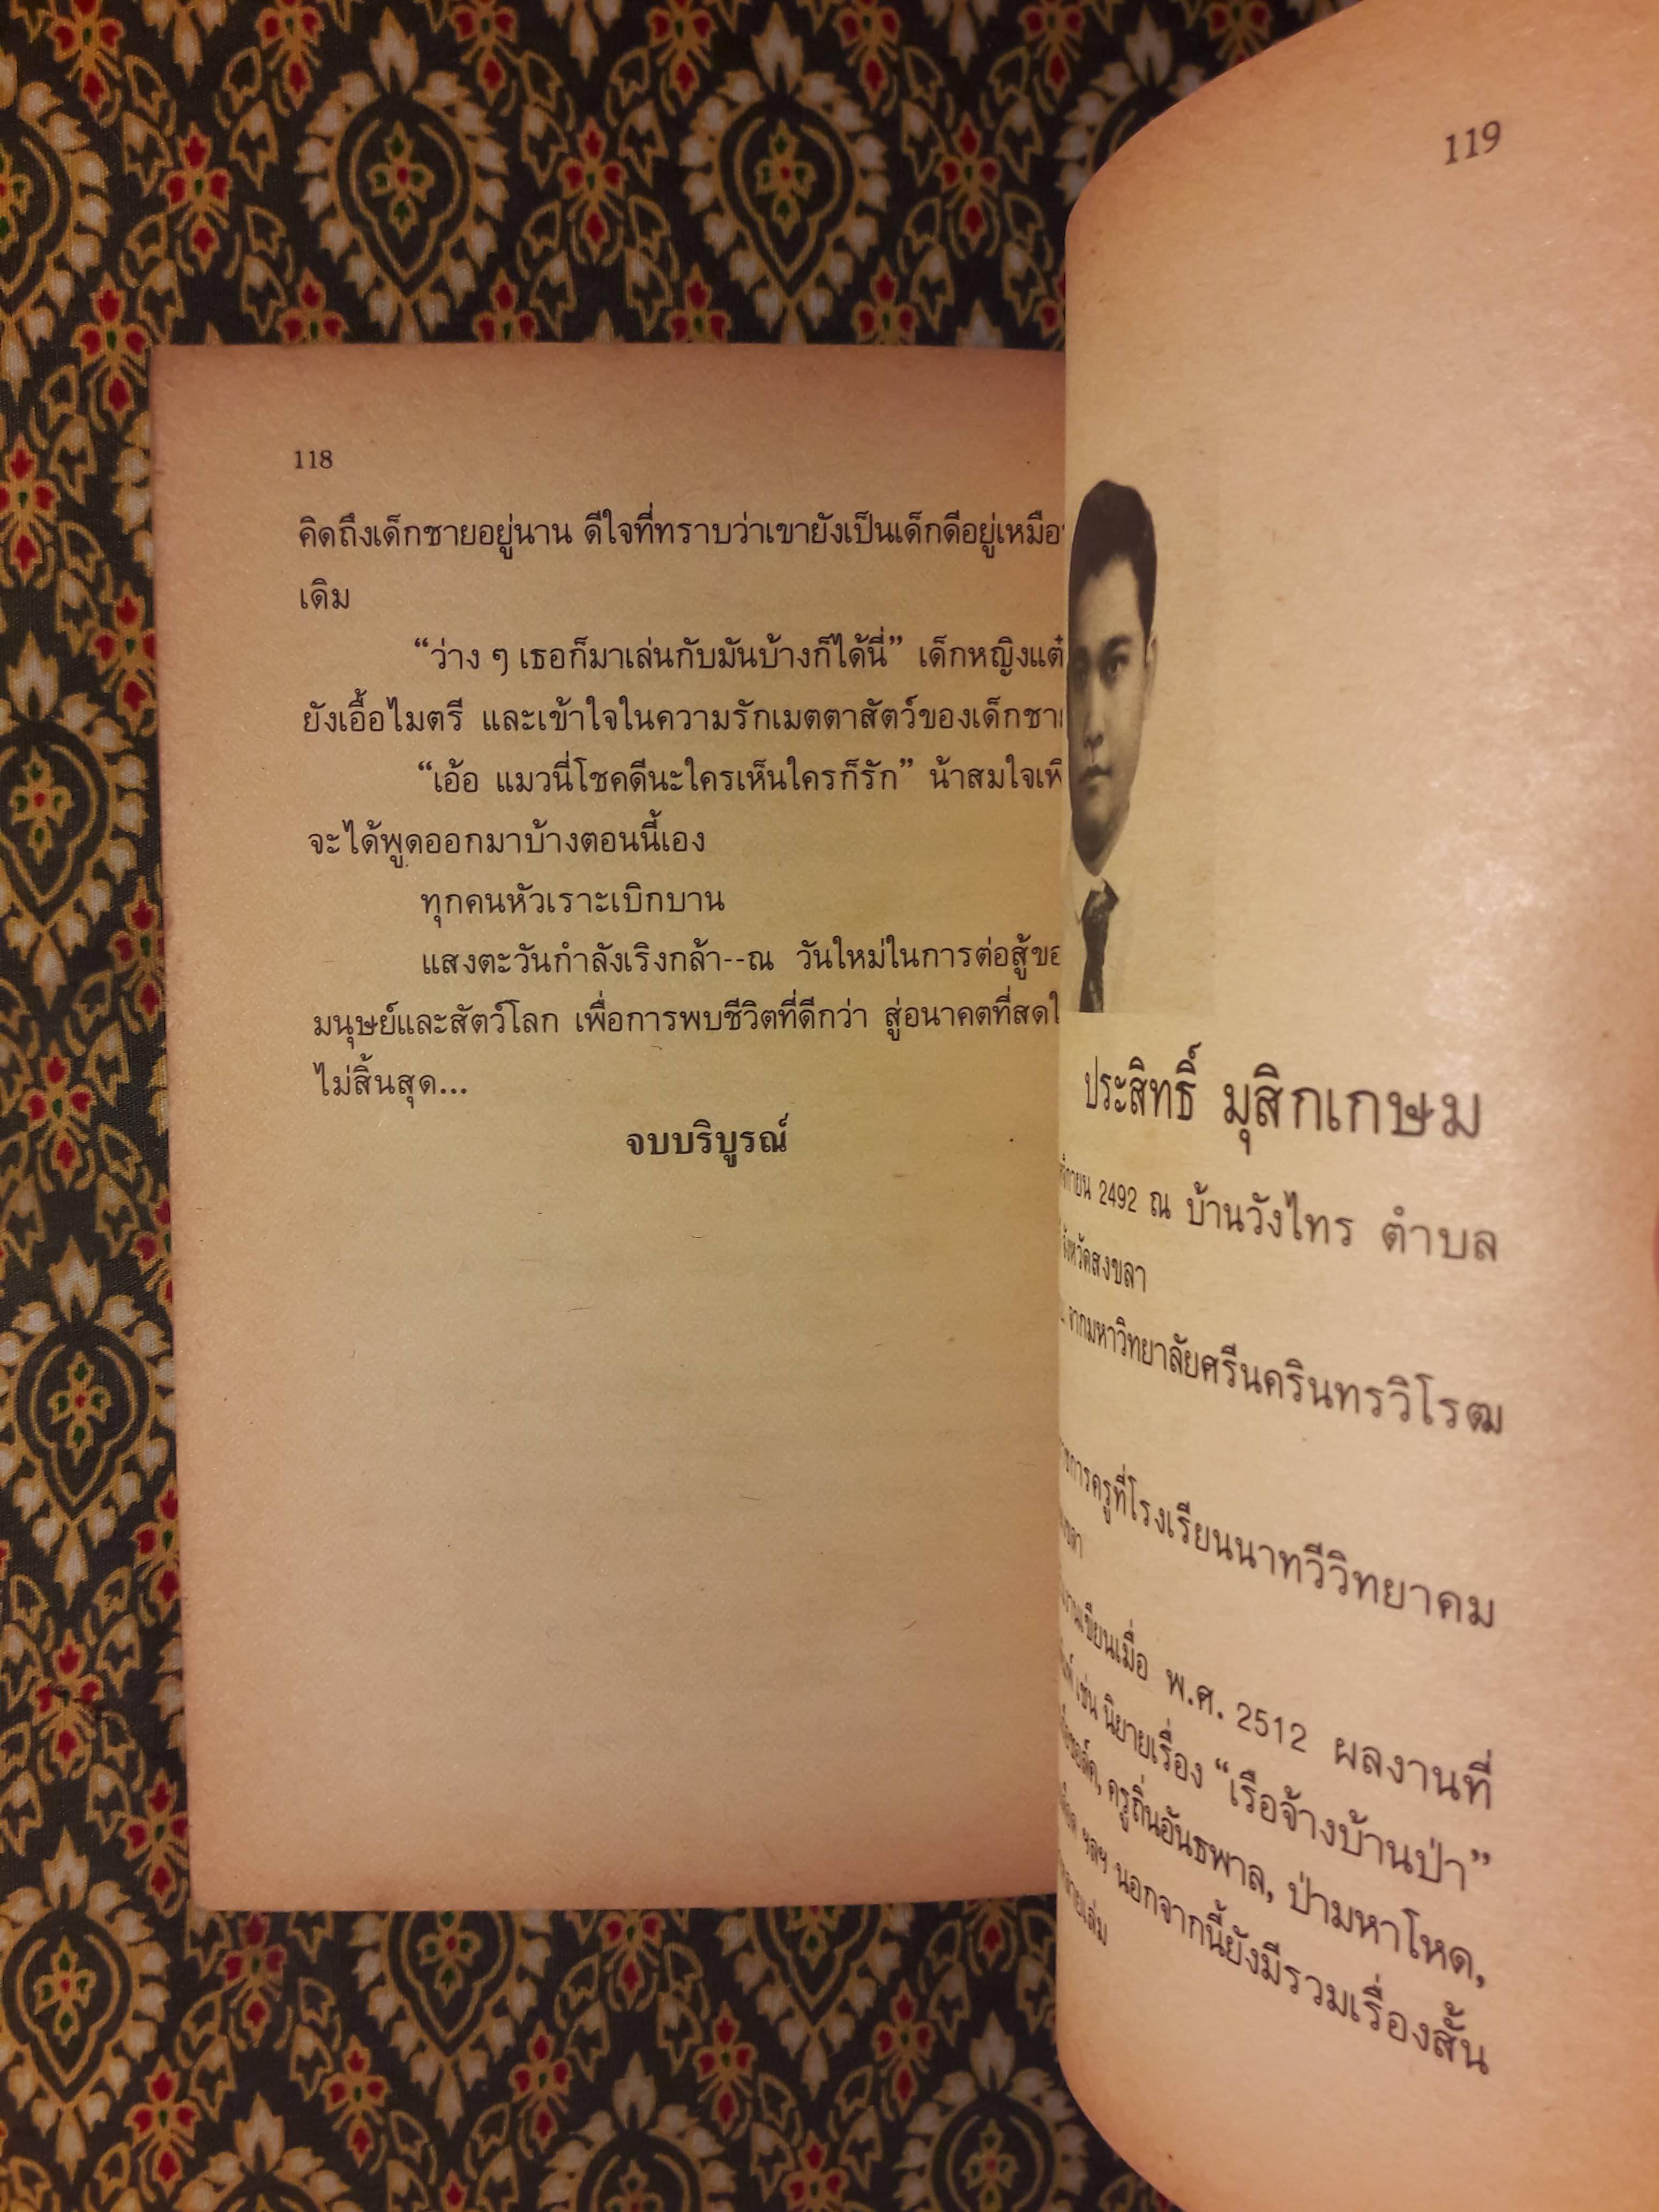 118
คิดถึงเด็กชายอยู่นาน ดีใจที่ทราบว่าเขายังเป็นเด็กดีอยู่
เดิม
“ว่าง ๆ เธอก็มาเล่นกับมันบ้างก็ได้นี่” เด็กหญิงแต๋
ยังเอื้อไมตรี และเข้าใจในความรักเมตตาสัตว์ของ
“เอ้อ แมวนี่โชคดีนะใครเห็นใครก็รัก” น้าสมใจ
จะได้พูดออกมาบ้างตอนนี้เอง
ทุกคนหัวเราะเบิกบาน
แสงตะวันกำลังเริงกล้า--ณ วันใหม่ในการต่อสู้
มนุษย์และสัตว์โลก เพื่อการพบชีวิตที่ดีกว่า สู่อนาคตที่
ไม่สิ้นสุด...
จบบริบูรณ์
119
ประสิทธิ์ มุสิกเกษม
2492 ณ บ้านวังไทร ตำบล
จังหวัดสงขลา
จากมหาวิทยาลัยศรีนครินทรวิโรฒ
ครูที่โรงเรียนนาทวีวิทยาคม
งานเขียนเมื่อ พ.ศ. 2512 ผลงานที่
เช่น นิยายเรื่อง “เรือจ้างบ้านป่า”
ครูถิ่นอันธพาล, ป่ามหาโหด,
ฯลฯ นอกจากนี้ยังมีรวมเรื่องสั้น
หลายเล่ม